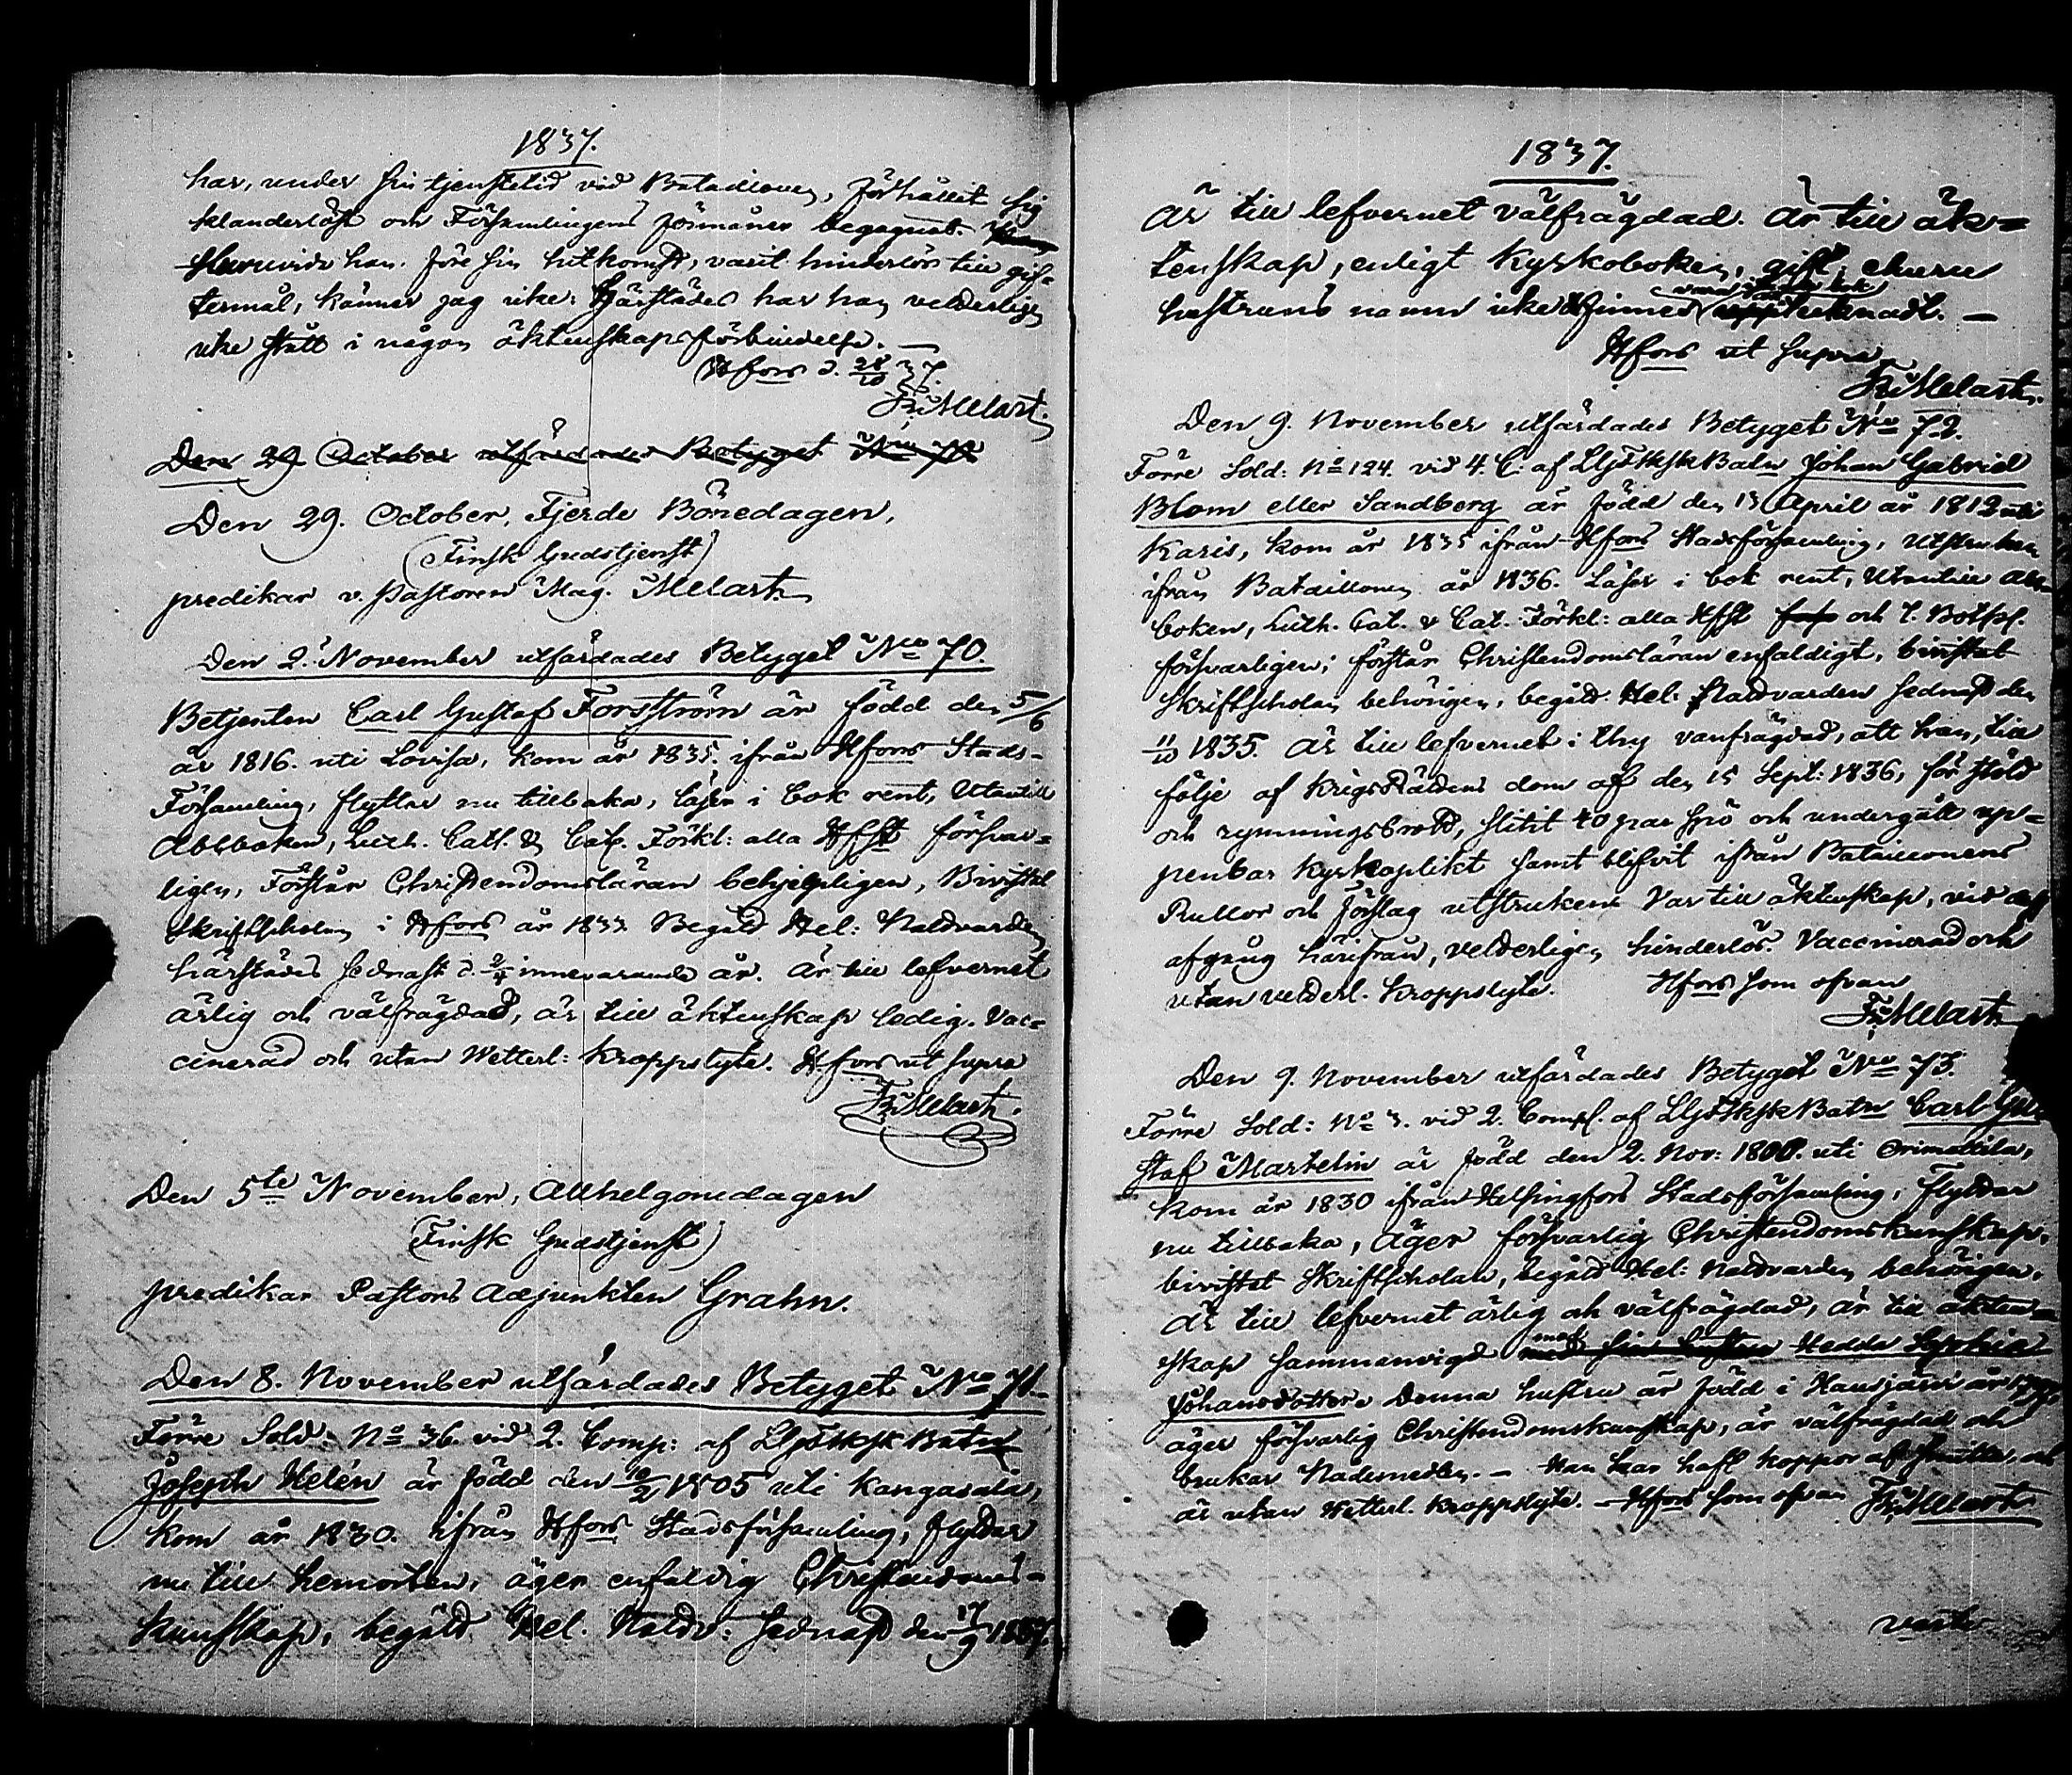 1837.
har, under sin tjenstetid vid Bataillonen, förhållit sig
klanderlöst och Församlingens förmåner begagnat.
Huruvida han, före sin hitkomst, varit hinderlös till gif-
termål, känner jag icke: Härstädes har han veterligen
icke stått i någon äktenskapsförbindelse. —
Hfors d. 28/10 37.
Fr: Melart.
Den 29 October utfärdades Betyget No 70
Den 29. October, Fjerde Bönedagen,
(Finsk Gudstjenst)
predikar v. Pastoren Mag. Melart.
Den 2. November utfärdades Betyget No 70.
Betjenten Carl Gustaf Forsström är född den 5/6
år 1816. uti Lovisa, kom år 1835. ifrån Hfors Stads-
Församling, flyttar nu tillbaka, läser i bok rent, Utantill
Abcboken, Luth. Cat. & Cat. Förkl: alla Hfst försvar-
ligen, Förstår Christendomsläran behjelpligen, Bivistat
Skriftscholan i Hfors år 1833. Begådt Hel: Nattvarden
härstädes sednast d. innevarande år. Är till lefvernet
ärlig och välfrägdad, är till äktenskap ledig. Vac-
cinerad och utan Wetterl: kroppslyte. Hfors ut supra
Fr: Melart.
Den 5te November, Allhelgonedagen
(Finsk Gudstjenst)
predikar Pastors Adjunkten Grahn.
Den 8. November utfärdades Betyget No 71.
Förre Sold: No 36. vid 2. Comp: af LljdFkSkBatn
Joseph Helén är född den 10/2 1805 uti Kangasala,
kom år 1830. ifrån Hfors Stadsförsamling, flyttar
nu till hemorten, äger enfaldig Christendoms-
kunskap, begådt Hel. Nattv: sednast den 17/9 1837.
1837.
Är till lefvernet välfrägdad. Är till äk-
tenskap, enligt Kyrkoboken, gift, ehuru
hustruns namn icke finnes upptecknadt. —
Hfors ut supra
Fr: Melart.
Den 9. November utfärdades Betyget No 72.
Förre Sold: No 124. vid 4. C: af LljdFkSkBatn Johan Gabriel
Blom eller Sandberg är född den 13 April år 1812 uti
Karis, kom år 1835 ifrån Hfors Stadsförsamling, Utstruken
ifrån Bataillonen år 1836. Läser i bok rent, Utantill Abc-
boken, Luth. Cat. & Cat. Förkl: alla Hfst och 7. Botps.
försvarligen; förstår Christendomsläran enfaldigt, bivistat
Skriftscholan behörigen, begådt Hel: Nattvarden sednast den
11/10 1835. Är till lefvernet i thy vanfrägdad, att han, till
följe af KrigsRättens dom af den 15 Sept: 1836, för stöld
och rymningsbrott, slitit 40 par spö och undergått up-
penbar kyrkoplikt samt blifvit ifrån Bataillonens
Rullor och förslag utstruken. Var till äktenskap, vid dess
afgång härifrån, vetterligen hinderlös. Vaccinerad och
utan vetterl. kroppslyte. Hfors som ofvan
Fr: Melart.
Den 9. November utfärdades Betyget No 73.
Förre Sold: No 3. vid 2. Comp. af LljdFkSkBatn Carl Gu-
staf Martelin är född den 2. Nov: 1800. uti Orimattila,
kom år 1830 ifrån Helsingfors Stadsförsamling, flyttar
nu tillbaka, äger försvarlig Christendomskunskap,
bivistat Skriftscholan, begådt Hel: Nattvarden behörigen.
Är till lefvernet ärlig och välfrägdad, är till äkten-
skap sammanvigd med sin hustru Hedda Sophia
Johansdotter. Denna hustru är född i Hausjärvi år
äger försvarlig Christendomskunskap, är välfrägdad och
brukar Nademedlen. — Han har haft koppor af smitta, och
är utan Wetterl. kroppslyte. — Hfors som ofvan Fr: Melart.